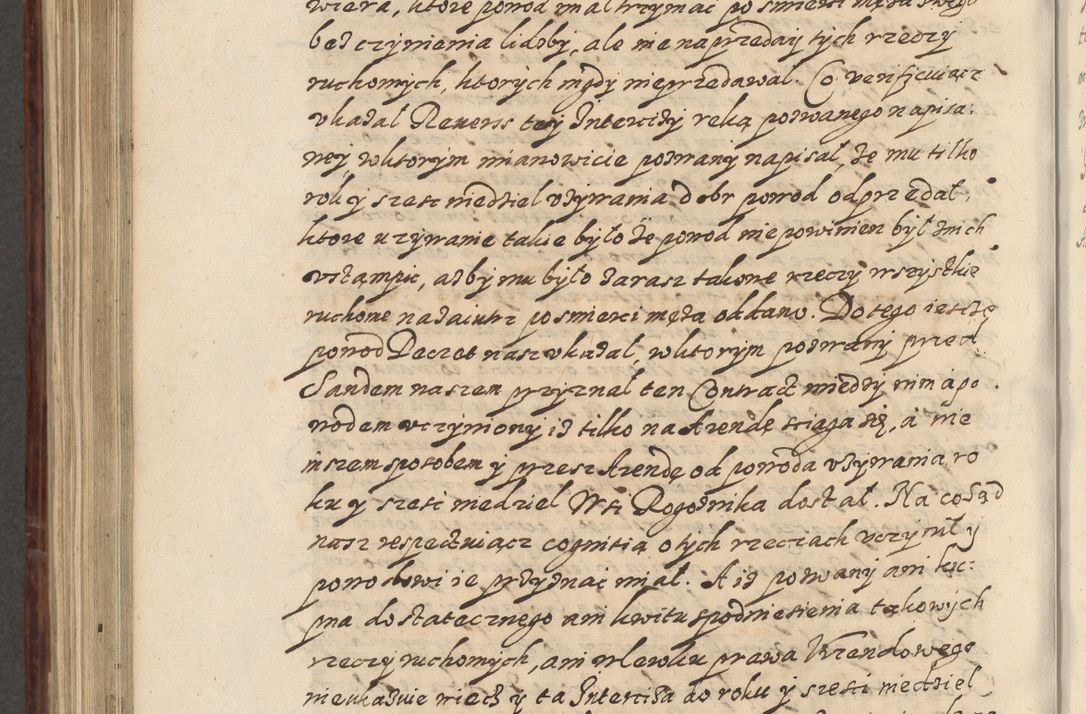 wiera, ktore powod miał trzymac po smierci męza swego
bez czynienia liczby, ale nie naprzeday tych rzeczy
ruchomych, ktorych nigdy nieprzedawał. Co verificuiącz
vkazal Reuers tey Intercizy reką pozwanego napisa:
ney, wktorym mianowicie pozwany napisał, że mu tilko
rok y szesc niedziel vzywania dobr powod odprzedał,
ktore uzywanie takie było że powod niepowinien był znich
vstąmpic, azby mu było zaraz takowe rzeczy wszystkie
ruchome nazaiutrz po smierci męza oddano. Do tego ieszcze
powod Decret nasz vkazał, wktorym pozwany przed
Sandem naszem przyznał ten Contract miedzy nim a po
wodem vczyniony iz tilko na Arendę sciąga się, a nie
inszem sposobem y przesz Arendę od powoda vzywania ro
ku y szesc niedziel Wsi Rogoznika dostał. Na co Sąd
nasz respectuiącz cognitią o tych rzeczach vczynił y
powodowi ie przyznac miał. A iz pozwany ani kup:
pna dostatecznego ani kwitu spodniesienia takowych
rzeczy ruchomych, ani wlewku prawa Arendowego
nieukazuie niech y ta Interciza do roku y szesci niedziel